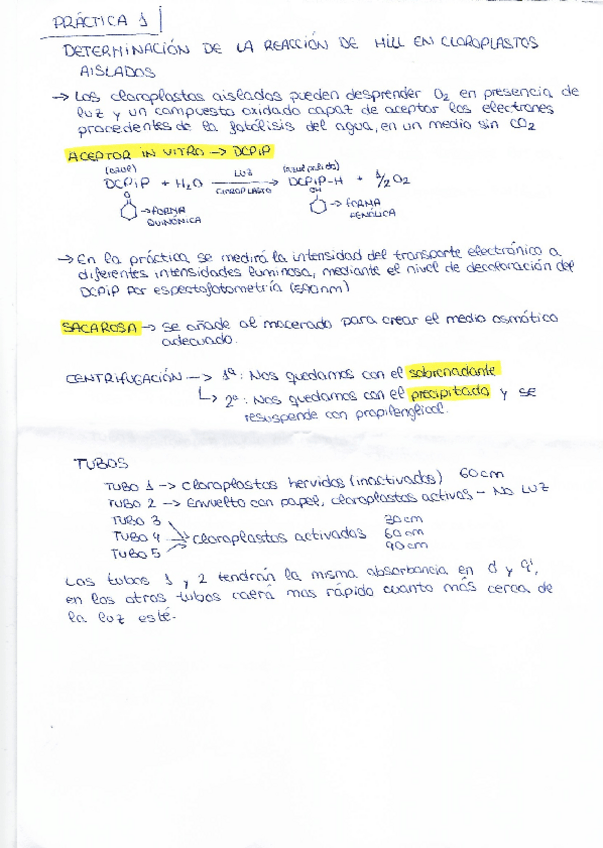 PRÁCTICA 1
DETERMINACIÓN DE LA REACCIÓN DE HILL EN CLOROPLASTOS
AISLADOS
→ Los cloroplastos aislados pueden desprender O₂ en presencia de
luz y un compuesto oxidado capaz de aceptar los electrones
procedentes de la fotólisis del agua, en un medio sin CO₂
ACEPTOR IN VITRO → DCPiP
(azul) LUZ (azul pálido)
DCPiP + H₂O → DCPiP-H + 1/2 O₂
CLOROPLASTO
O OH
→ FORMA QUINÓNICA → FORMA FENÓLICA
→ En la práctica se medirá la intensidad del transporte electrónico a
diferentes intensidades luminosa, mediante el nivel de decoloración del
DCPiP por espectofotometría (590nm)
SACAROSA → Se añade al macerado para crear el medio osmótico
adecuado.
CENTRIFUGACIÓN --> 1ª: Nos quedamos con el sobrenadante
↳ 2ª: Nos quedamos con el precipitado y se
resuspende con propilenglicol.
TUBOS
TUBO 1 → cloroplastos hervidos (inactivados) 60cm
TUBO 2 → Envuelto con papel, cloroplastos activos - No LUZ
TUBO 3 30cm
TUBO 4 → cloroplastos activados 60cm
TUBO 5 90cm
Los tubos 1 y 2 tendrán la misma absorbancia en
en los otros tubos caerá mas rápido cuanto más cerca de
la luz esté.